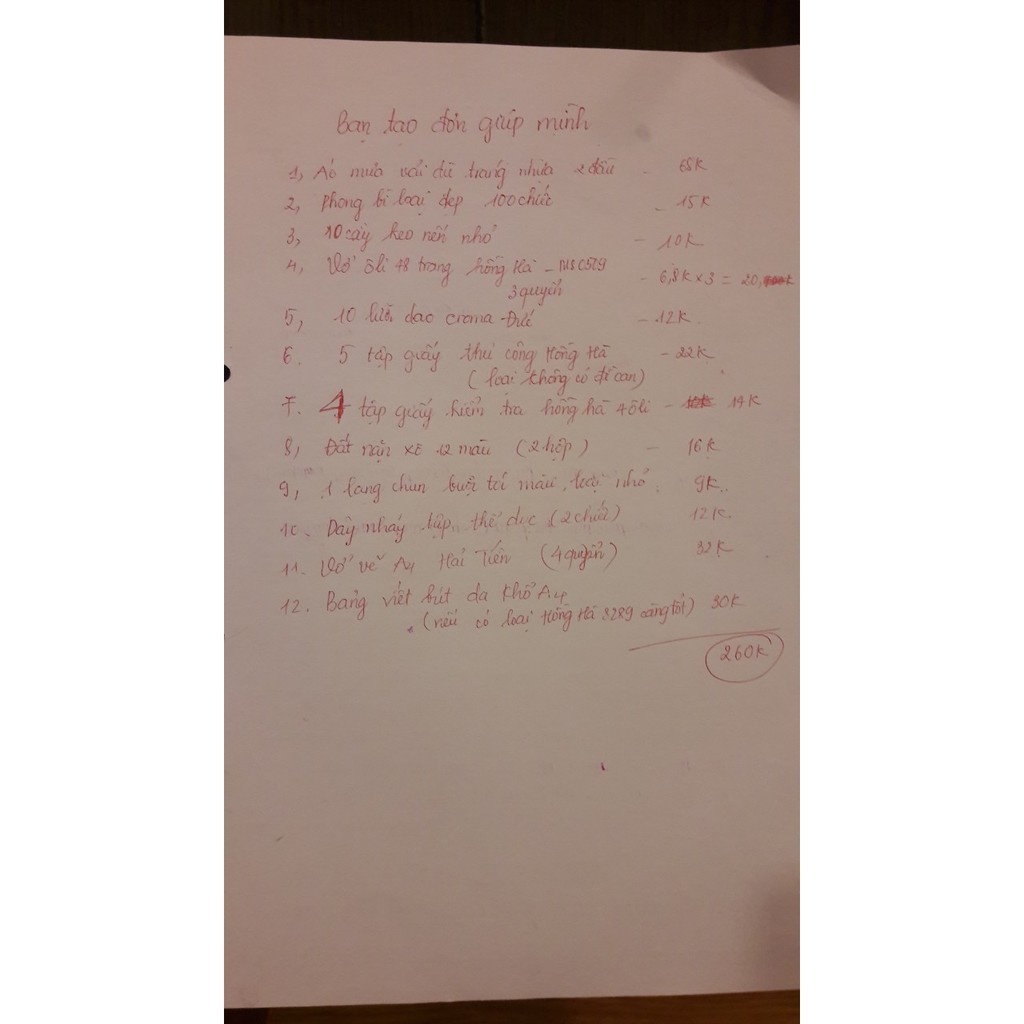 Bạn tạo đơn giúp mình
1, Áo mưa vải dù tráng nhựa 2 đầu - 68K
2, phong bì loại đẹp 100 chiếc - 15K
3, 10 cây keo nến nhỏ - 10K
4, Vở ôli 48 trang hồng Hà - MS 0529 - 6,8K x 3 = 20,
3 quyển
5, 10 lưỡi dao croma Đức - 12K.
6. 5 tập giấy thủ công Hồng Hà - 22K
(loại không có đề can)
7. 4 tập giấy kiểm tra hồng hà 4 ôli - 14K
8, Đất nặn xô 12 màu (2 hộp) - 16K
9, 1 lạng chun buộc tóc màu, loại nhỏ. 9K.
10. Dây nhảy tập thể dục (2 chiếc) 12K.
11. Vở vẽ A4 Hải Tiến (4 quyển) 32K
12. Bảng viết bút dạ khổ A4
(nếu có loại Hồng Hà 3289 càng tốt) 30K
260K